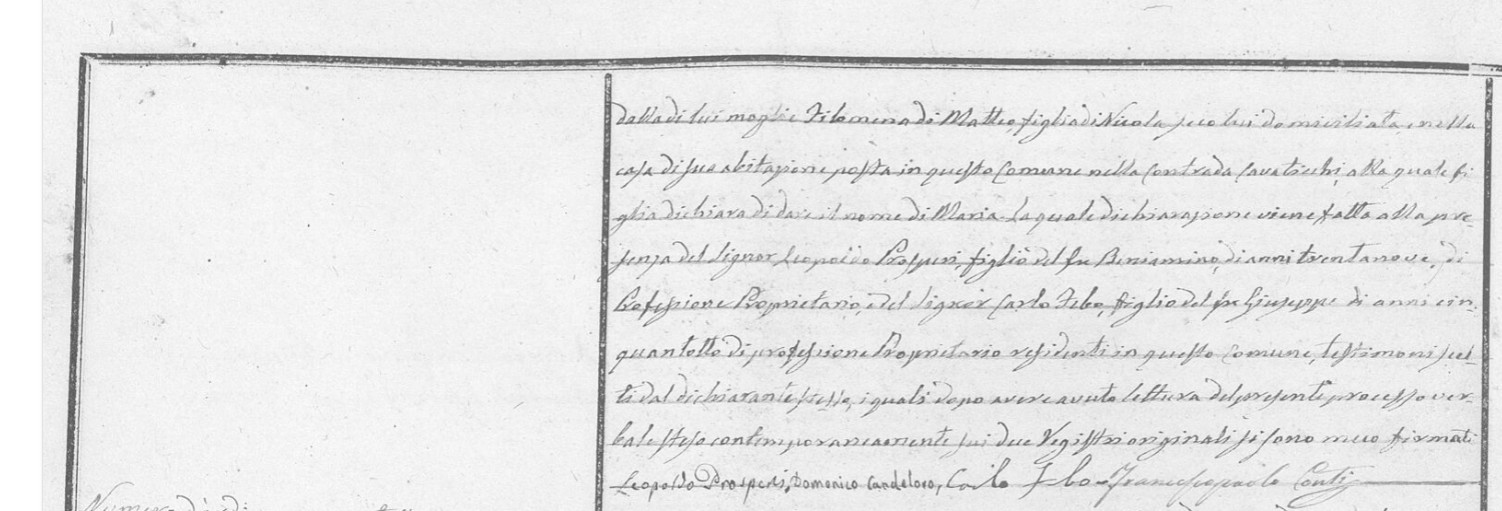 dalla di lui moglie Filomena di Matteo figlia di Nicola seco lui domiciliata e nella
casa di sua abitazione posta in questo Comune nella Contrada Cavaticchi, alla quale fi
glia dichiara di dare il nome di Maria. La quale dichiarazione viene fatta alla pre-
senza del Signor Leopoldo Prosperi, figlio del fu Beniamino, di anni trentanove, di
Professione Proprietario, e del Signor Carlo Febo, figlio del fu Giuseppe di anni cin-
quantotto di professione Proprietario residenti in questo Comune, testimoni scel-
ti dal dichiarante stesso, i quali dopo avere avuto lettura del presente processo ver-
bale steso contemporaneamente sui due Registri originali si sono meco firmati
Leopoldo Prosperi, Domenico Candeloro, Carlo Febo - Francescopaolo Conti
Numero